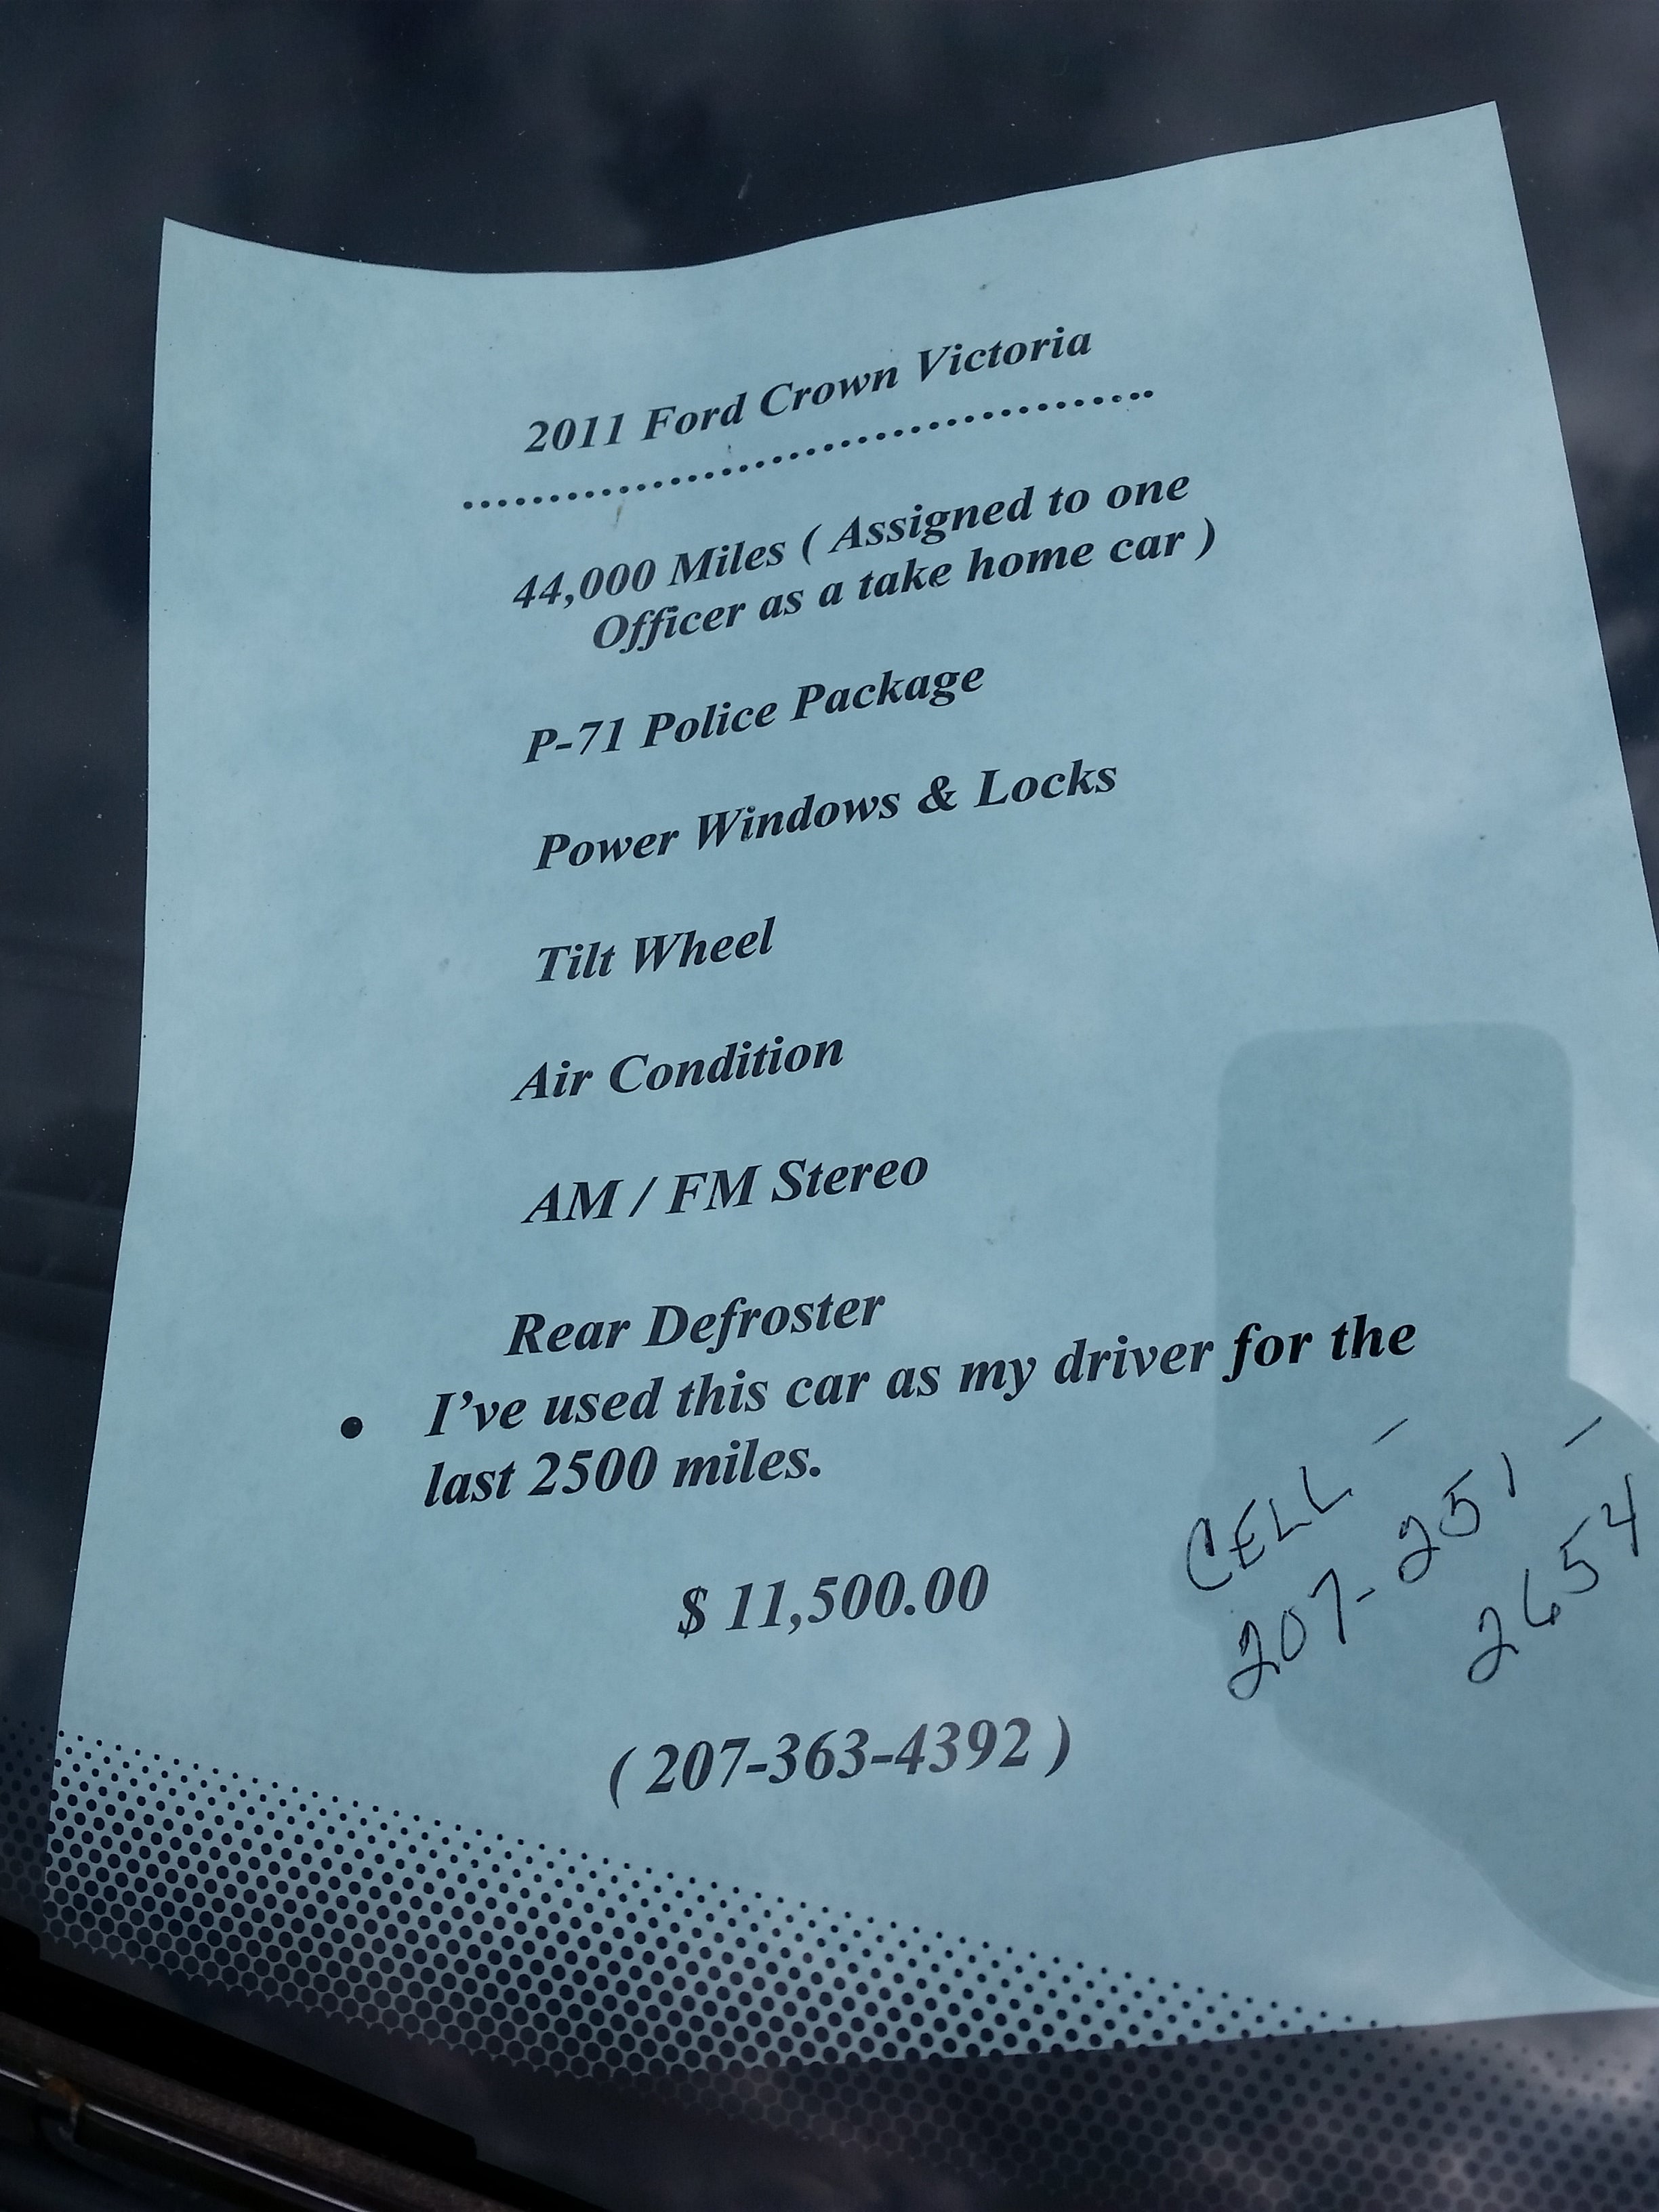 2011 Ford Crown Victoria
..........................................
44,000 Miles ( Assigned to one
Officer as a take home car )
P-71 Police Package
Power Windows & Locks
Tilt Wheel
Air Condition
AM / FM Stereo
Rear Defroster
• I’ve used this car as my driver for the
last 2500 miles.
$ 11,500.00
( 207-363-4392 )
CELL -
207-251-
2654